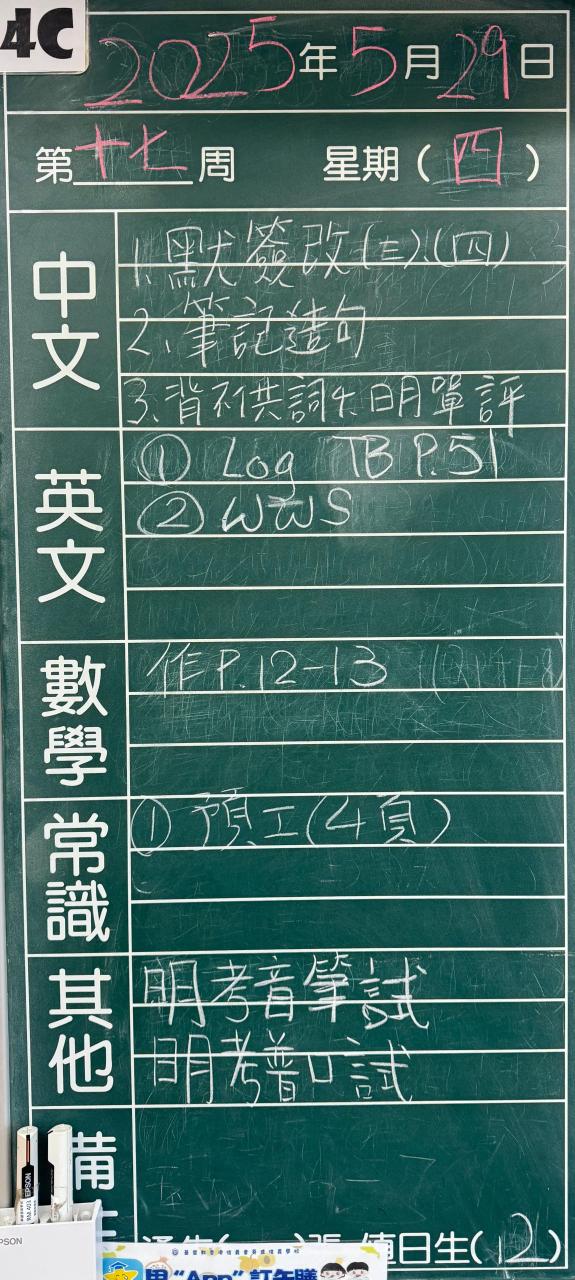 4C
2025年5月29日
第十七周 星期(四)
中文
1. 默簽改(三)(四)
2. 筆記造句
3. 背不供詞 4. 明單評
英文
① Log TB P.51
② WWS
數學
作P.12-13
常識
① 預工(4頁)
其他
明考音筆試
明考普口試
備
值日生(12)
EPSON
"App"訂午膳